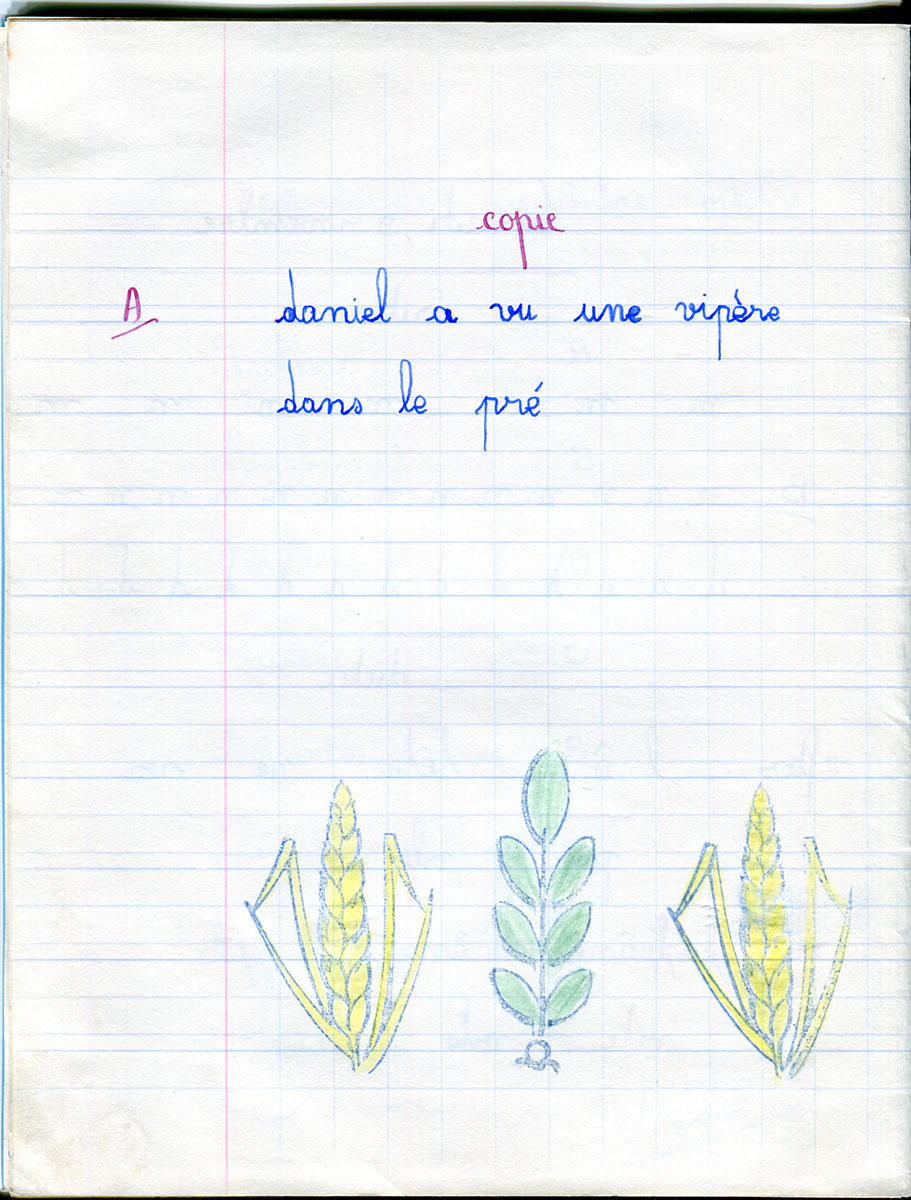 copie
A daniel a vu une vipère
dans le pré